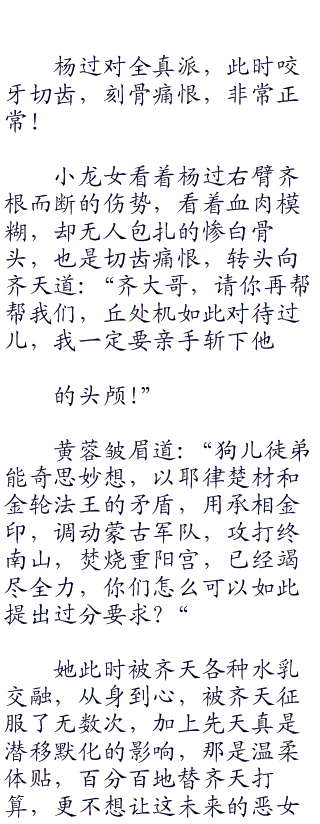 杨过对全真派，此时咬
牙切齿，刻骨痛恨，非常正
常！
小龙女看着杨过右臂齐
根而断的伤势，看着血肉模
糊，却无人包扎的惨白骨
头，也是切齿痛恨，转头向
齐天道：“齐大哥，请你再帮
帮我们，丘处机如此对待过
儿，我一定要亲手斩下他
的头颅！”
黄蓉皱眉道：“狗儿徒弟
能奇思妙想，以耶律楚材和
金轮法王的矛盾，用承相金
印，调动蒙古军队，攻打终
南山，焚烧重阳宫，已经竭
尽全力，你们怎么可以如此
提出过分要求？“
她此时被齐天各种水乳
交融，从身到心，被齐天征
服了无数次，加上先天真是
潜移默化的影响，那是温柔
体贴，百分百地替齐天打
算，更不想让这未来的恶女